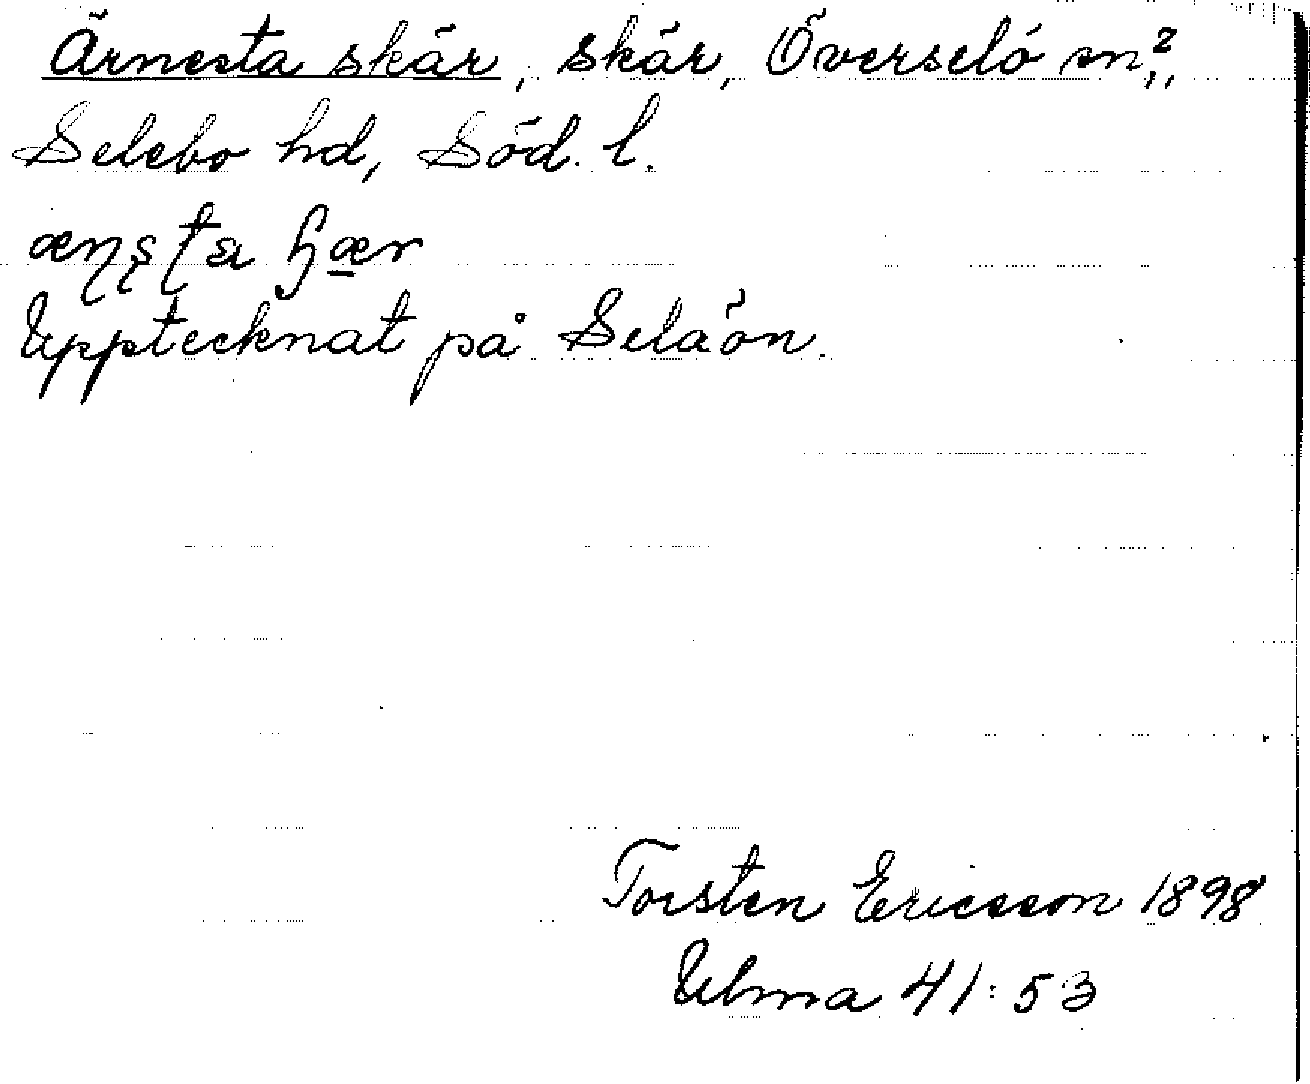 Ärnesta skär, skär, Överselö sn?,
Selebo hd, Söd. l.
Upptecknat på Selaön.
Torsten Ericsson 1898
Ulma 41:53